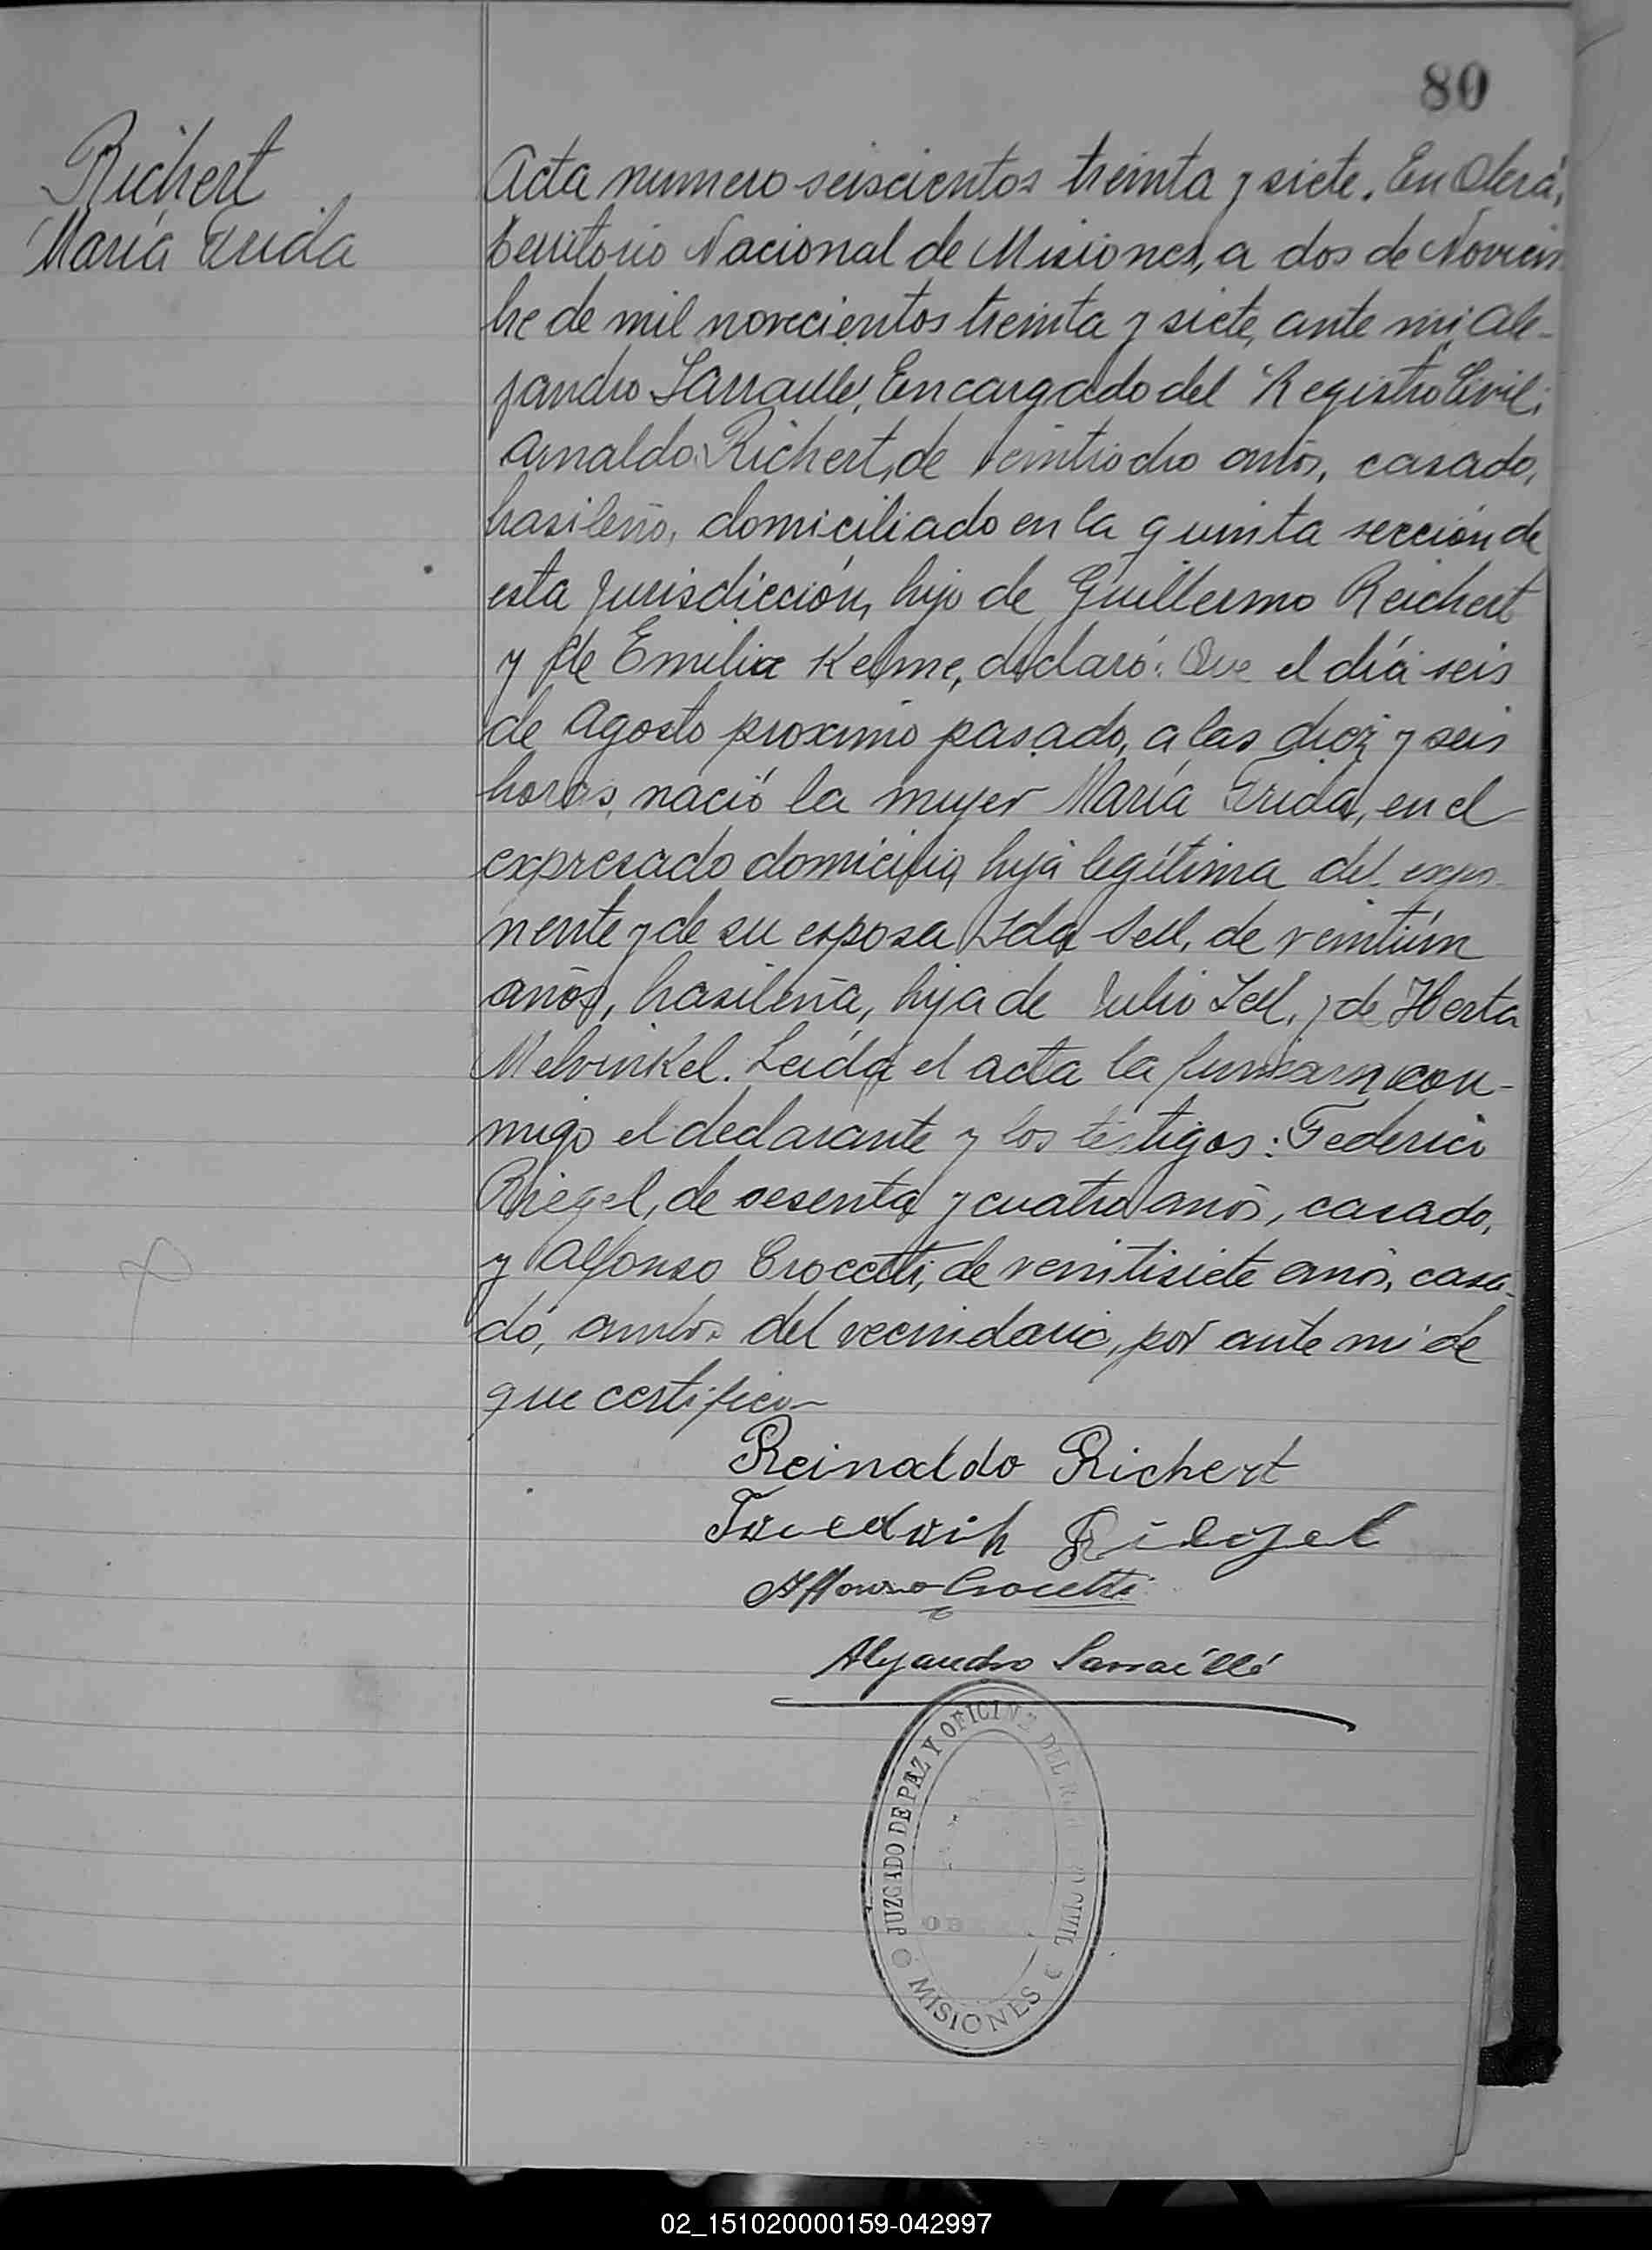 80
Richert
María Frida
Acta numero seiscientos treinta y siete. En Oberá,
territorio Nacional de Misiones, a dos de Noviem
bre de mil novecientos treinta y siete, ante mi Ale-
jandro Sarraillé, Encargado del Registro Civil;
Arnaldo Richert, de veintiocho años, casado,
brasileño, domiciliado en la quinta sección de
esta jurisdicción, hijo de Guillermo Reichert
y de Emilia Kelme, declaró: Que el día seis
de Agosto proximo pasado, a las diez y seis
horas, nació la mujer María Frida, en el
expresado domicilio, hija legítima del expo-
nente y de su esposa Ida Sell, de veintiún
años, brasileña, hija de Julio Sell, y de Herta
Melvinkel. Leída el acta la firmaron con-
migo el declarante y los testigos: Federico
Riegel, de sesenta y cuatro años, casado,
y Alfonso Crocetti, de veintisiete años, casa-
do, ambos del vecindario, por ante mi de
que certifico
Reinaldo Richert
Riegel
Alfonso Crocetti
Alejandro Sarraillé
JUZGADO DE PAZ Y OFICINA DEL CIVIL
MISIONES
02_151020000159-042997